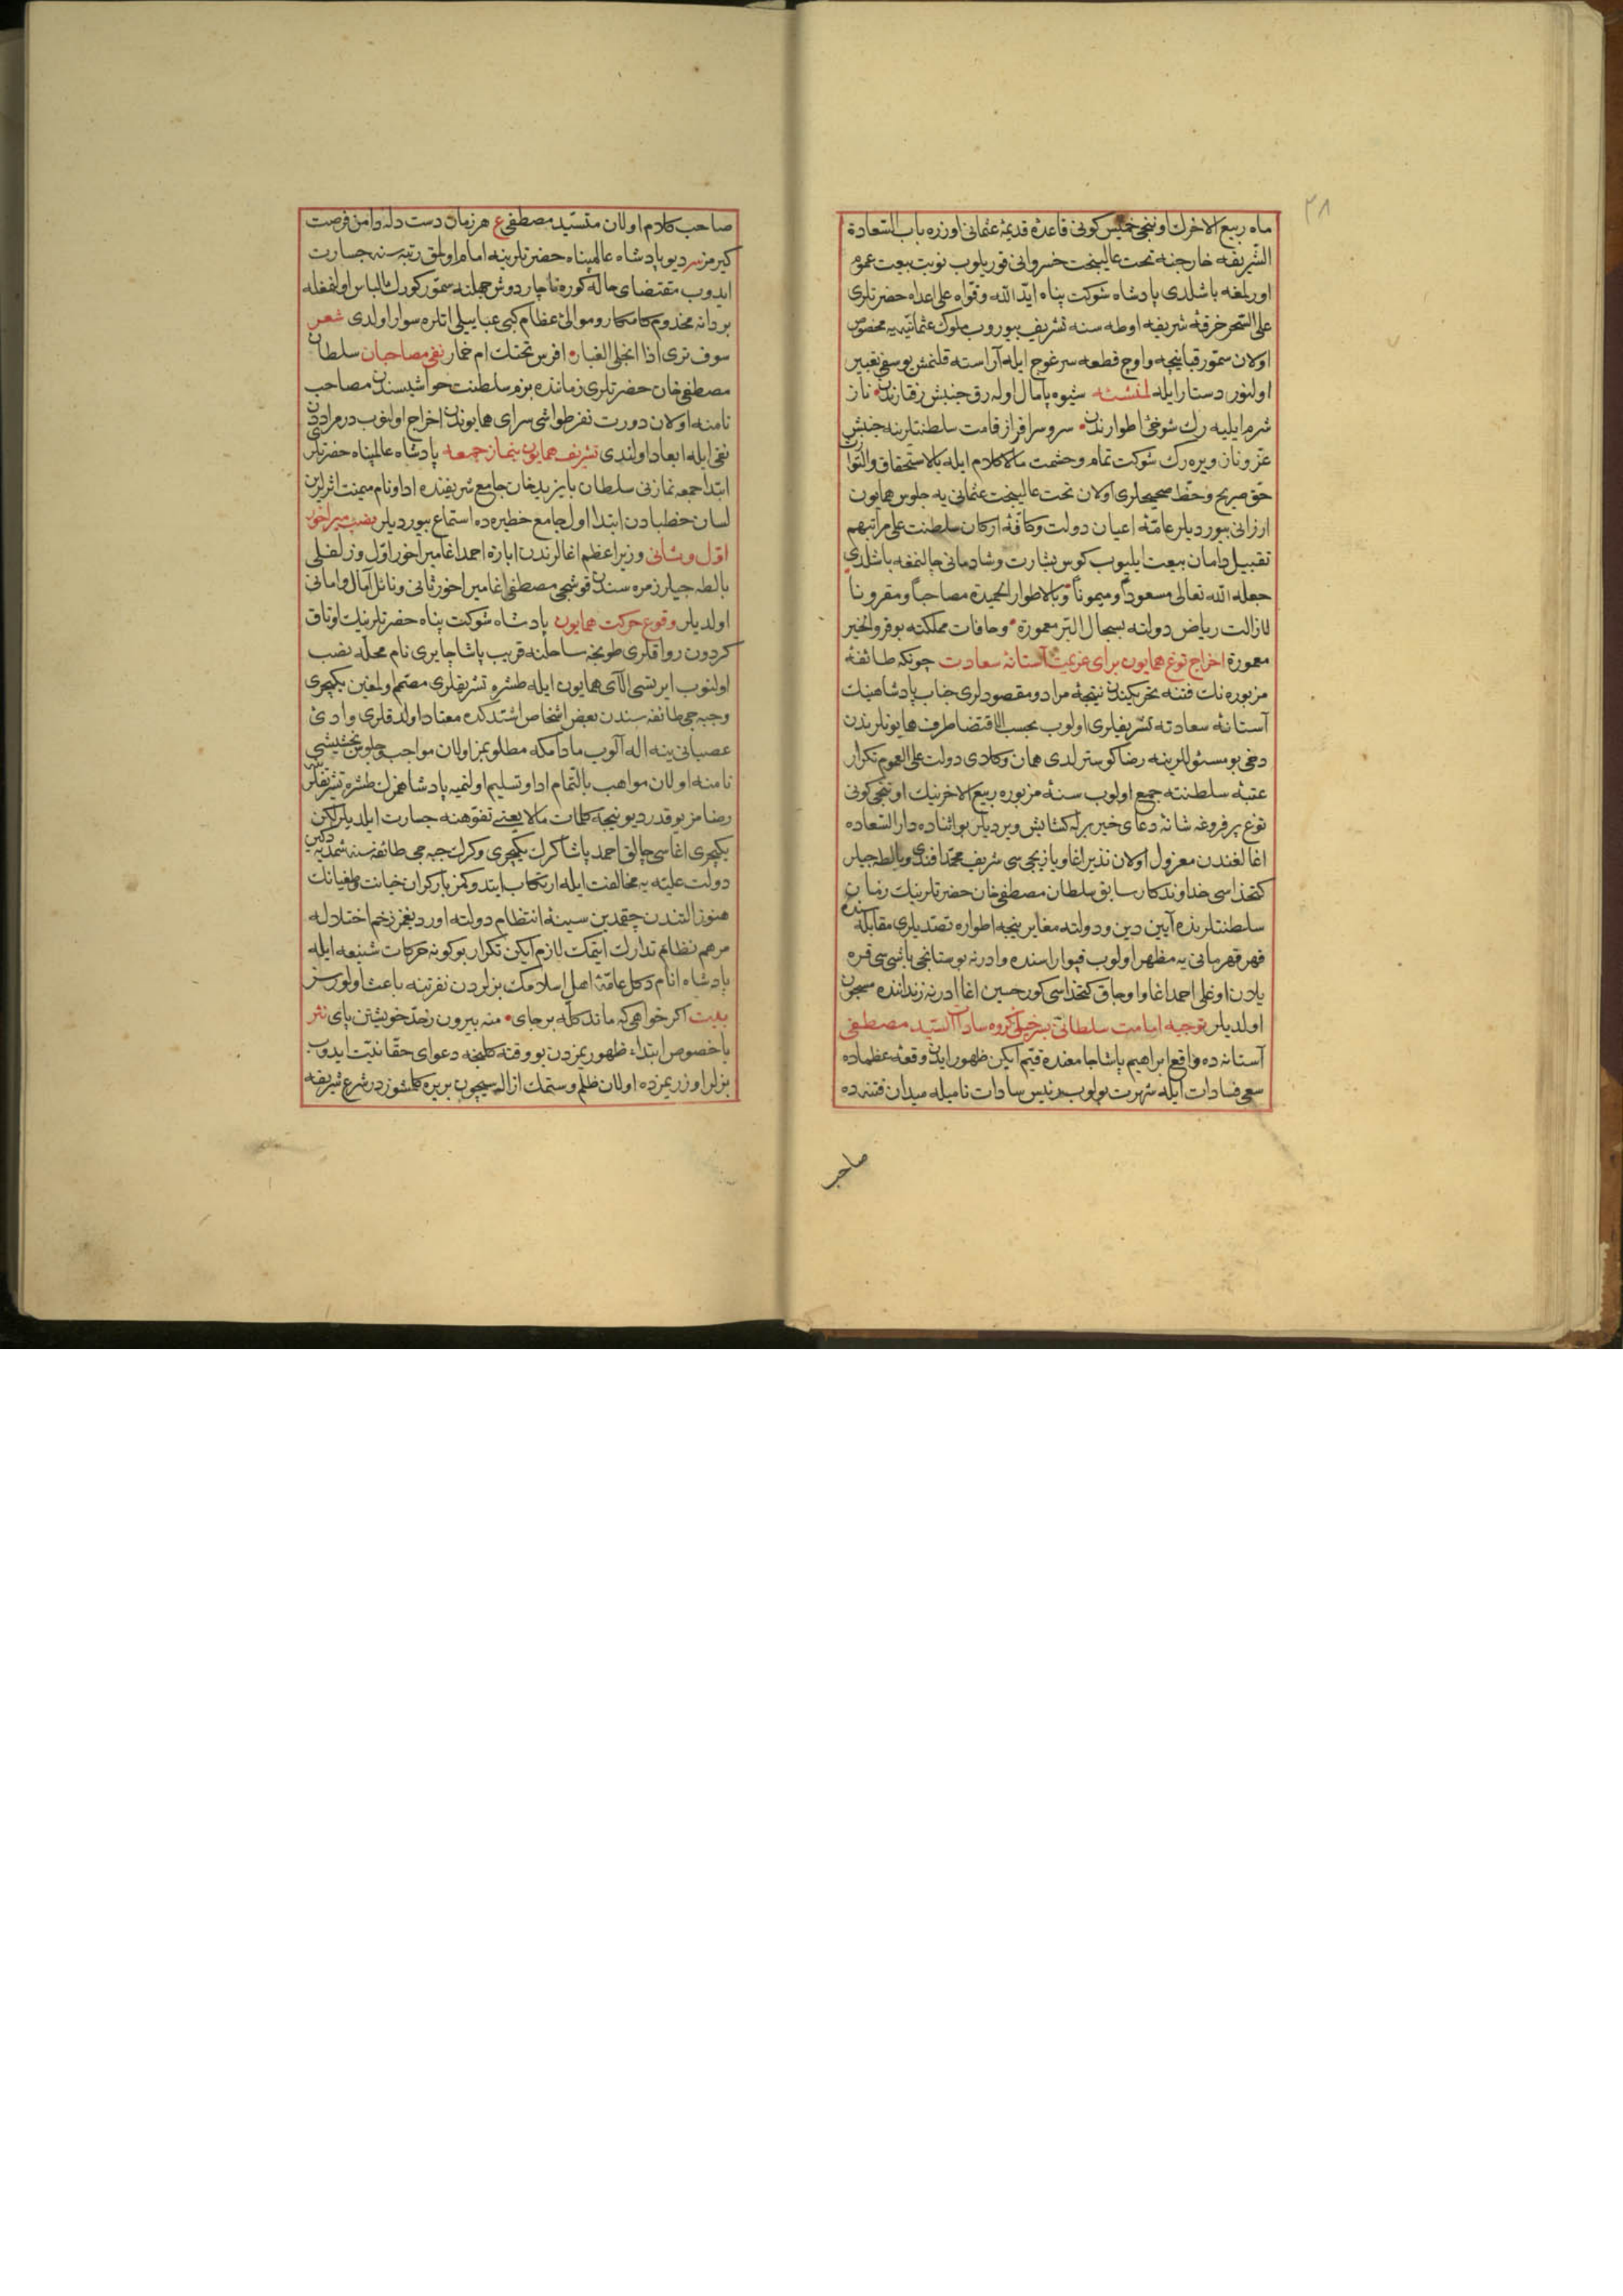 ٣٨
ماه ربيع الاخرك اوننجى خميس كونى قاعدۀ قديمۀ عثمانى اوزره باب السّعادة
الشّريفه خارجنه تحت عاليبخت خسروانى قوريلوب نوبت بيعت عموم
اوريلمغه باشلدى پادشاه شوكت پناه ايّد الله وقوّاه على اعداه حضرتلرى
على السّحر خرقۀ شريفه اوطه سنه تشريف بيوروب ملوك عثمانيّه يه مخصوص
اولان سمّور قپانيچه واوج قطعه سرغوج ايله آراسته قلنمش يوسفى تعبير
اولنور دستار ايله شيوه پامال اوله رق جنبش رفتارندن ناز
شرم ايليه رك شوخئ اطوارندن سرو سرافراز قامت سلطنتلرينه جنبش
عزّ وناز ويره رك شوكت تمام وحشمت مالاكلام ايله بالاستحقاق والتّوارث
حقّ صريح وحظّ صحيحلرى اولان تحت عاليبخت عثمانى يه جلوس همايون
ارزانى بيورديلر عامّۀ اعيان دولت وكافّۀ اركان سلطنت على مراتبهم
تقبيل دامان بيعت ايليوب كوس بشارت وشادمانى چالنمغه باشلدى
جعله الله تعالى مسعوداً وميموناً وبالاطوار الحميدة مصاحباً ومقروناً
لازالت رياض دولته بسجال البّر معمورة وحافات مملكته بوفور الخير
معمورة اخراج توغ همايون براى عزيمت آستانۀ سعادت چونكه طائفۀ
مزبوره نك فتنه تحريكندن نتيجۀ مراد ومقصودلرى جناب پادشاهينك
آستانۀ سعادته تشريفلرى اولوب بحسب الاقتضا طرف همايونلرندن
دخى بو مسئوللرينه رضا كوسترلدى همان وكلاى دولت على العموم تكرار
عتبۀ سلطنته جمع اولوب سنۀ مزبوره ربيع الاخرينك اوننجى كونى
توغ پر فروغه شانه دعاى خير برله كشايش ويرديلر بو اثناده دار السّعاده
اغالغندن معزول اولان نذير اغا ويازيجى سى شريف محمّد افندى وبالطه جيلر
كتخداسى خداوندكار سابق سلطان مصطفى خان حضرتلرينك زمان
سلطنتلرنده آيين دين ودولته مغاير نيجه اطواره تصدّيلرى مقابله سنده
قهر قهرمانى يه مظهر اولوب قپو اراسنده وادرنه بوستانجى باشى سى قره
يلان اوغلى احمد اغا واوجاق كتخداسى كور حسين اغا ادرنه زنداننده مسجون
اولديلر توجيه امامت سلطانى بسرخيل كروه سادات السّيد مصطفى
آستانه ده واقع ابراهيم پاشا جامعنده قيّم ايكن ظهور ايدن وقعۀ عظماده
سعى فسادات ايله شهرت بولوب رئيس سادات ناميله ميدان فتنه ده
صاحب
صاحب كلام اولان متسيّد مصطفى ع هر زمان دست دله دامن فرصت
كيرمز سر ديو پادشاه عالمپناه حضرتلرينه امام اولمق رتبه سنه جسارت
ايدوب مقتضاى حاله كوره ناچار دوش جهلنه سمّور كورك الباس اولنمغله
بردانه مخدوم كامكار وموالئ عظام كبى عباييلى اتلره سوار اولدى شعر
سوف ترى اذا انجلى الغبار افرس تحتك ام حمار نفى مصاحبان سلطان
مصطفى خان حضرتلرى زماننده بزم سلطنت حواشيسندن مصاحب
نامنه اولان دورت نفر طواشى سراى همايوندن اخراج اولنوب
نفى ايله ابعاد اولندى تشريف همايون بنماز جمعه پادشاه عالمپناه حضرتلرى
ابتدا جمعه نمازنى سلطان بايزيد خان جامع شريفنده ادا ونام ميمنت اثرلرين
لسان خطبادن ابتدا اول جامع خطيره ده استماع بيورديلر نصب مير اخور
اوّل وثانى وزير اعظم اغالرندن ابازه احمد اغا مير اخور اوّل وزلفلى
بالطه جيلر زمره سندن قوشجى مصطفى اغا مير اخور ثانى ونائل آمال وامانى
اولديلر وقوع حركت همايون پادشاه شوكت پناه حضرتلرينك اوتاق
كردون رواقلرى طونجه ساحلنه قريب پاشا چايرى نام محلّه نصب
اولنوب ايرتسى آلاى همايون ايله طشره تشريفلرى مصمّم اولمغين يكيچرى
وجبه جى طائفه سندن بعض اشخاص اشتدكده معتاد اولدقلرى وادئ
عصيانى ينه اله آلوب مادامكه مطلوبمز اولان مواجب وجلوس بخشيشى
نامنه اولان مواهب بالتّمام ادا وتسليم اولنميه پادشاهمزك طشره تشريفلرينه
رضامز يوقدر ديو نيجه كلمات مالايعنى تفوّهنه جسارت ايلديلر لكن
يكيچرى اغاسى چالق احمد پاشا كرك يكيچرى وكرك جبه جى طائفه سنه شمديه دكين
دولت عليّه يه مخالفت ايله ارتكاب ايتدوكمز باركران خيانت وطغيانك
هنوز التندن چقمدين سينۀ انتظام دولته اورديغمز زخم اختلاله
مرهم نظام تدارك ايتمك لازم ايكن تكرار بو كونه حركات شنيعه ايله
پادشاه انام دكل عامّۀ اهل اسلامك بزلردن نفرتنه باعث اولورسز
بيت اكر خواهى كه ماند كلّه بر جاى منه بيرون زحدّ خويشتن پاى نثر
باخصوص ابتداء ظهوريمزدن بو وقته كلنجه دعواى حقّانيّت ايدوب
بزلر اوزريمزده اولان ظلم وستمك ازاله سيچون بريره كلمشوزدر شرع شريفه